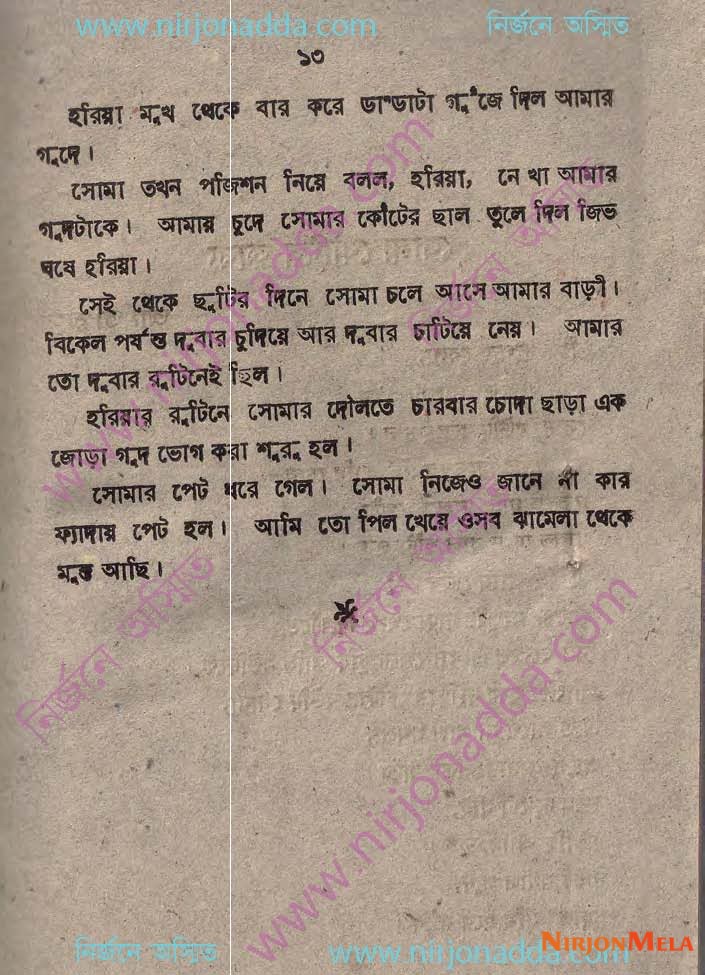 www.nirjonadda.com নির্জনে অস্মিত
১৩
হরিয়া মুখ থেকে বার করে ডাণ্ডাটা গুঁজে দিল আমার
গুদে।
সোমা তখন পজিশন নিয়ে বলল, হরিয়া, নে খা আমার
গুদটাকে। আমায় চুদে সোমার কোঁটের ছাল তুলে দিল জিভ
ঘষে হরিয়া।
সেই থেকে ছুটির দিনে সোমা চলে আসে আমার বাড়ী।
বিকেল পর্যন্ত দুবার চুদিয়ে আর দুবার চাটিয়ে নেয়। আমার
তো দুবার রুটিনেই ছিল।
হরিয়ার রুটিনে সোমার দৌলতে চারবার চোদা ছাড়া এক
জোড়া গুদ ভোগ করা শুরু হল।
সোমার পেট ধরে গেল। সোমা নিজেও জানে না কার
ফ্যাদায় পেট হল। আমি তো পিল খেয়ে ওসব ঝামেলা থেকে
মুক্ত আছি।
www.nirjonadda.com
নির্জনে অস্মিত
নির্জনে অস্মিত
নির্জনে অস্মিত
www.nirjonadda.com
নির্জনে অস্মিত www.nirjonadda.com
NIRJONMELA